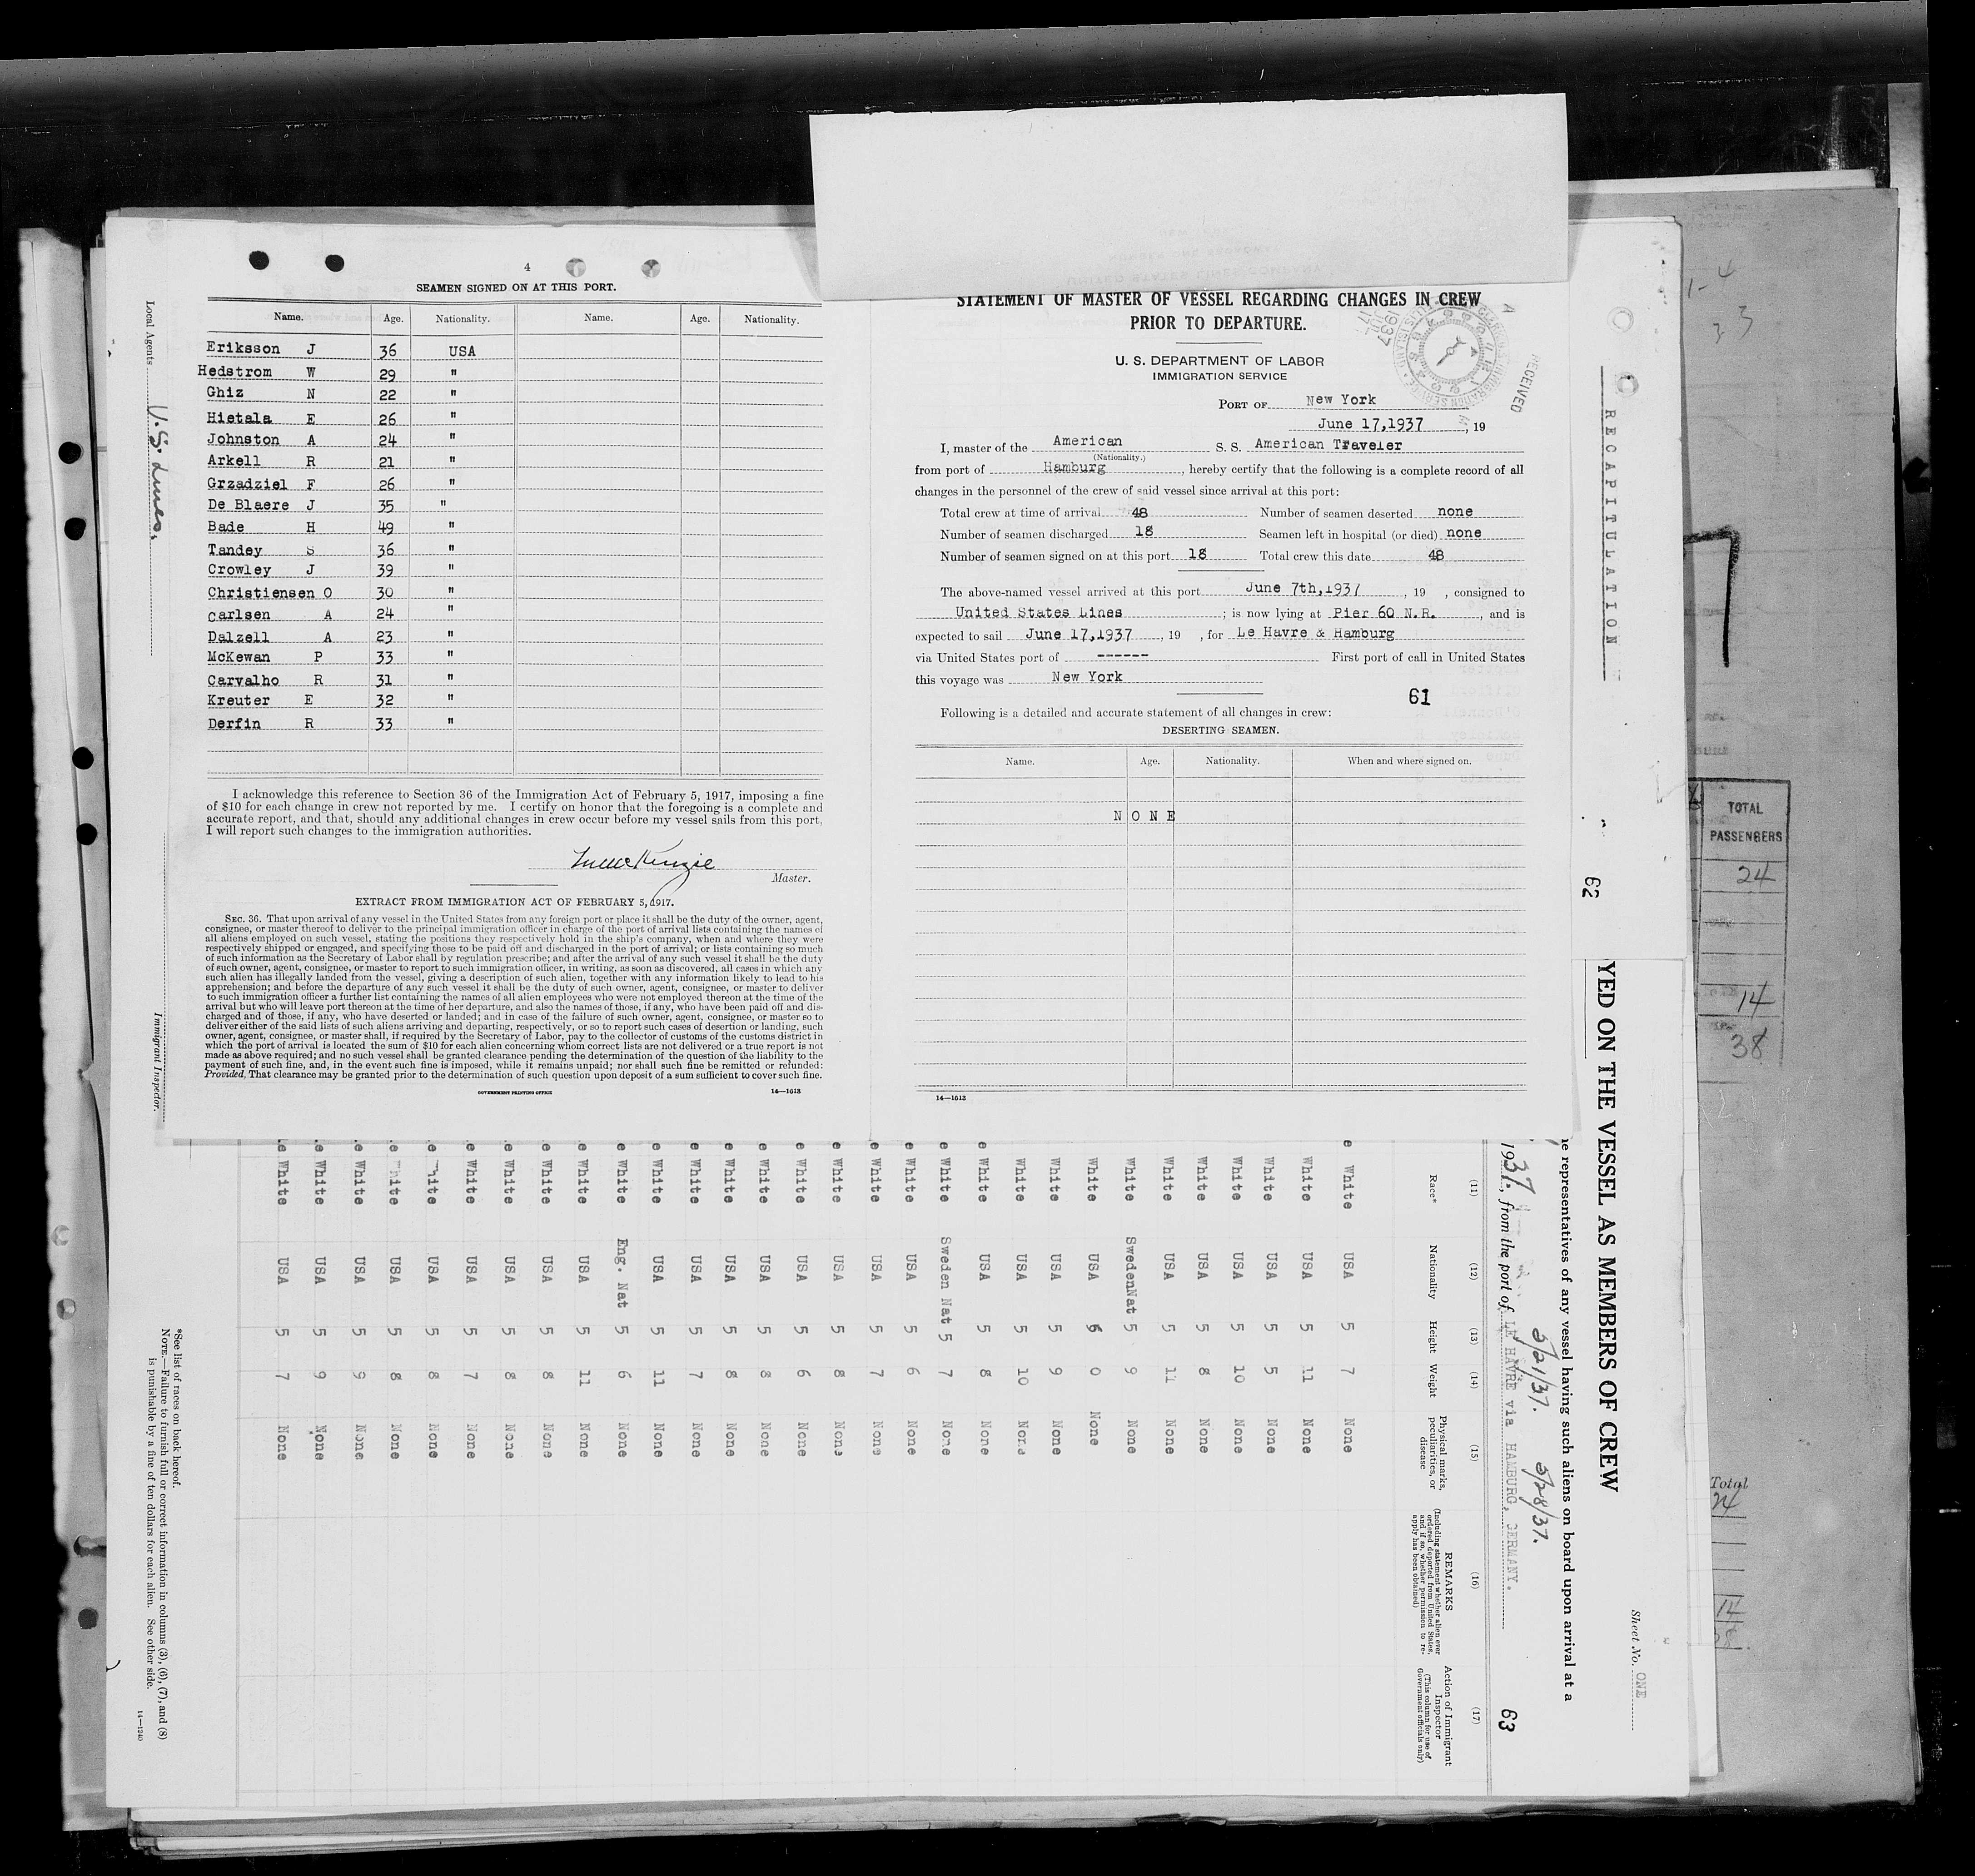 4
SEAMEN SIGNED ON AT THIS PORT.
Name. Age. Nationality. Name. Age. Nationality.
Eriksson J 36 USA
Hedstrom W 29 "
Ghiz N 22 "
Hietala E 26 "
Johnston A 24 "
Arkell R 21 "
Grzadziel F 26 "
De Blaere J 35 "
Bade H 49 "
Tandey S 36 "
Crowley J 39 "
Christiensen O 30 "
Carlsen A 24 "
Dalzell A 23 "
McKewan P 33 "
Carvalho R 31 "
Kreuter E 32 "
Derfin R 33 "
I acknowledge this reference to Section 36 of the Immigration Act of February 5, 1917, imposing a fine
of $10 for each change in crew not reported by me. I certify on honor that the foregoing is a complete and
accurate report, and that, should any additional changes in crew occur before my vessel sails from this port,
I will report such changes to the immigration authorities.
Master.
EXTRACT FROM IMMIGRATION ACT OF FEBRUARY 5, 1917.
SEC. 36. That upon arrival of any vessel in the United States from any foreign port or place it shall be the duty of the owner, agent,
consignee, or master thereof to deliver to the principal immigration officer in charge of the port of arrival lists containing the names of
all aliens employed on such vessel, stating the positions they respectively hold in the ship's company, when and where they were
respectively shipped or engaged, and specifying those to be paid off and discharged in the port of arrival; or lists containing so much
of such information as the Secretary of Labor shall by regulation prescribe; and after the arrival of any such vessel it shall be the duty
of such owner, agent, consignee, or master to report to such immigration officer, in writing, as soon as discovered, all cases in which any
such alien has illegally landed from the vessel, giving a description of such alien, together with any information likely to lead to his
apprehension; and before the departure of any such vessel it shall be the duty of such owner, agent, consignee, or master to deliver
to such immigration officer a further list containing the names of all alien employees who were not employed thereon at the time of the
arrival but who will leave port thereon at the time of her departure, and also the names of those, if any, who have been paid off and dis-
charged and of those, if any, who have deserted or landed; and in case of the failure of such owner, agent, consignee, or master so to
deliver either of the said lists of such aliens arriving and departing, respectively, or so to report such cases of desertion or landing, such
owner, agent, consignee, or master shall, if required by the Secretary of Labor, pay to the collector of customs of the customs district in
which the port of arrival is located the sum of $10 for each alien concerning whom correct lists are not delivered or a true report is not
made as above required; and no such vessel shall be granted clearance pending the determination of the question of the liability to the
payment of such fine, and, in the event such fine is imposed, while it remains unpaid; nor shall such fine be remitted or refunded:
Provided, That clearance may be granted prior to the determination of such question upon deposit of a sum sufficient to cover such fine.
GOVERNMENT PRINTING OFFICE 14—1613
Local Agents U.S. Lines.
Immigrant Inspector.
STATEMENT OF MASTER OF VESSEL REGARDING CHANGES IN CREW
PRIOR TO DEPARTURE.
U. S. DEPARTMENT OF LABOR
IMMIGRATION SERVICE
RECEIVED
PORT OF New York
June 17,1937, 19
I, master of the American S. S. American Traveler
(Nationality.)
from port of Hamburg, hereby certify that the following is a complete record of all
changes in the personnel of the crew of said vessel since arrival at this port:
Total crew at time of arrival 48 Number of seamen deserted none
Number of seamen discharged 18 Seamen left in hospital (or died) none
Number of seamen signed on at this port 18 Total crew this date 48
The above-named vessel arrived at this port June 7th,1937, 19 , consigned to
United States Lines; is now lying at Pier 60 N.R., and is
expected to sail June 17,1937, 19 , for Le Havre & Hamburg
via United States port of ------ First port of call in United States
this voyage was New York
61
Following is a detailed and accurate statement of all changes in crew:
DESERTING SEAMEN.
Name. Age. Nationality. When and where signed on.
NONE
14—1613
RECAPITULATION
62
TOTAL
PASSENGERS
24
14
38
Total
24
14
Sheet No. ONE
YED ON THE VESSEL AS MEMBERS OF CREW
e representatives of any vessel having such aliens on board upon arrival at a
5/21/37. 5/28/37.
1937, from the port of LE HAVRE via HAMBURG, GERMANY.
63
(11) (12) (13) (14) (15) (16) (17)
Race* Nationality Height Weight Physical marks, peculiarities, or disease
REMARKS
(Including statement whether alien ever ordered deported from United States, and if so, whether permission to re-apply has been obtained)
Action of Immigrant Inspector
(This column for use of Government officials only)
e White USA 5 7 None
White USA 5 11 None
White USA 5 5 None
White USA 5 10 None
White USA 5 8 None
White USA 5 11 None
White SwedenNat 5 9 None
White USA 6 0 None
White USA 5 9 None
White USA 5 10 None
e White USA 5 8 None
e White Sweden Nat 5 7 None
e White USA 5 6 None
e White USA 5 7 None
e White USA 5 8 None
e White USA 5 6 None
e White USA 5 8 None
e White USA 5 8 None
e White USA 5 7 None
e White USA 5 11 None
e White Eng. Nat 5 6 None
e White USA 5 11 None
e White USA 5 8 None
e White USA 5 8 None
e White USA 5 7 None
e White USA 5 8 None
e White USA 5 8 None
e White USA 5 9 None
e White USA 5 9 None
e White USA 5 7 None
*See list of races on back hereof.
NOTE.—Failure to furnish full or correct information in columns (3), (6), (7), and (8)
is punishable by a fine of ten dollars for each alien. See other side.
14—1240